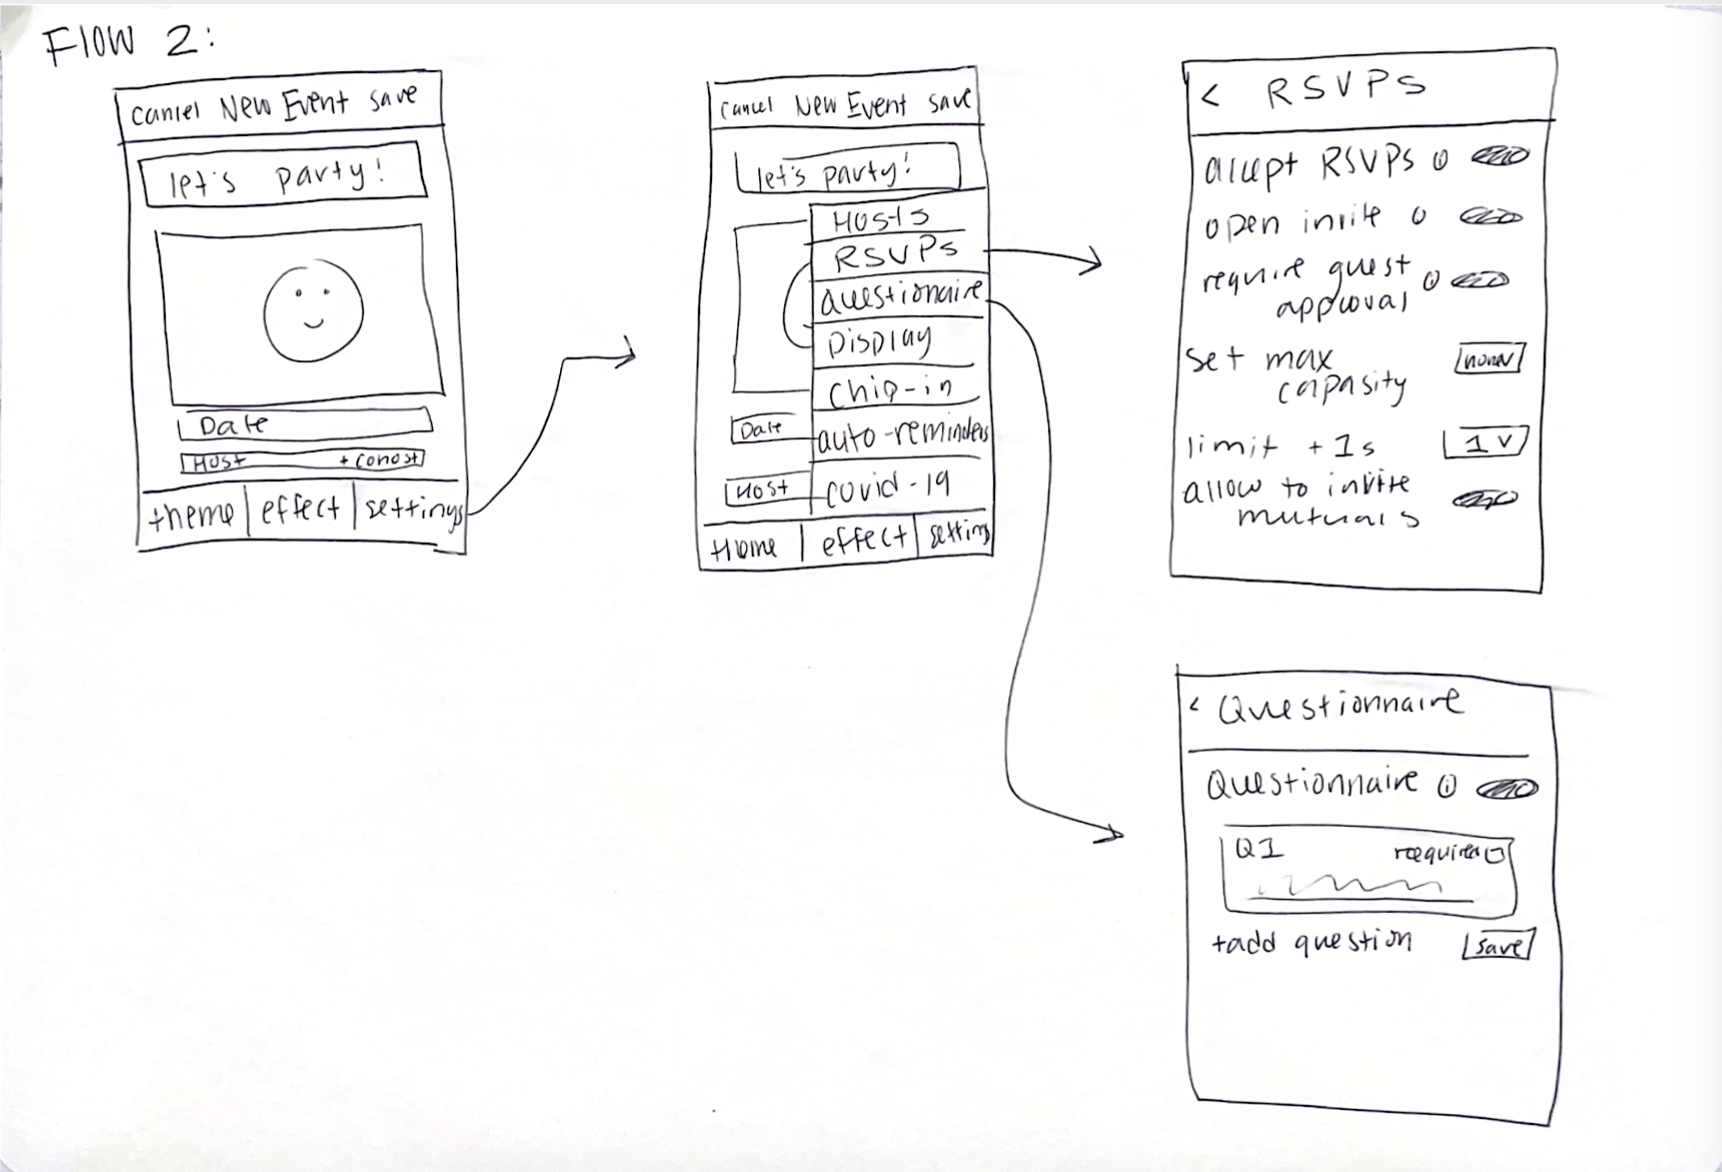 FLOW 2:
cancel New Event save
let's party!
Date
Host + cohost
theme effect settings
cancel New Event save
let's party!
Hosts
RSVPs
Questionaire
Display
chip-in
Date
auto-reminders
Host
covid-19
theme effect setting
< RSVPS
accept RSVPs i
open invite o
require guest
approval i
set max
capasity
none
limit +1s 1 v
allow to invite
mutuals
< Questionnaire
Questionnaire i
Q1 require
+add question save